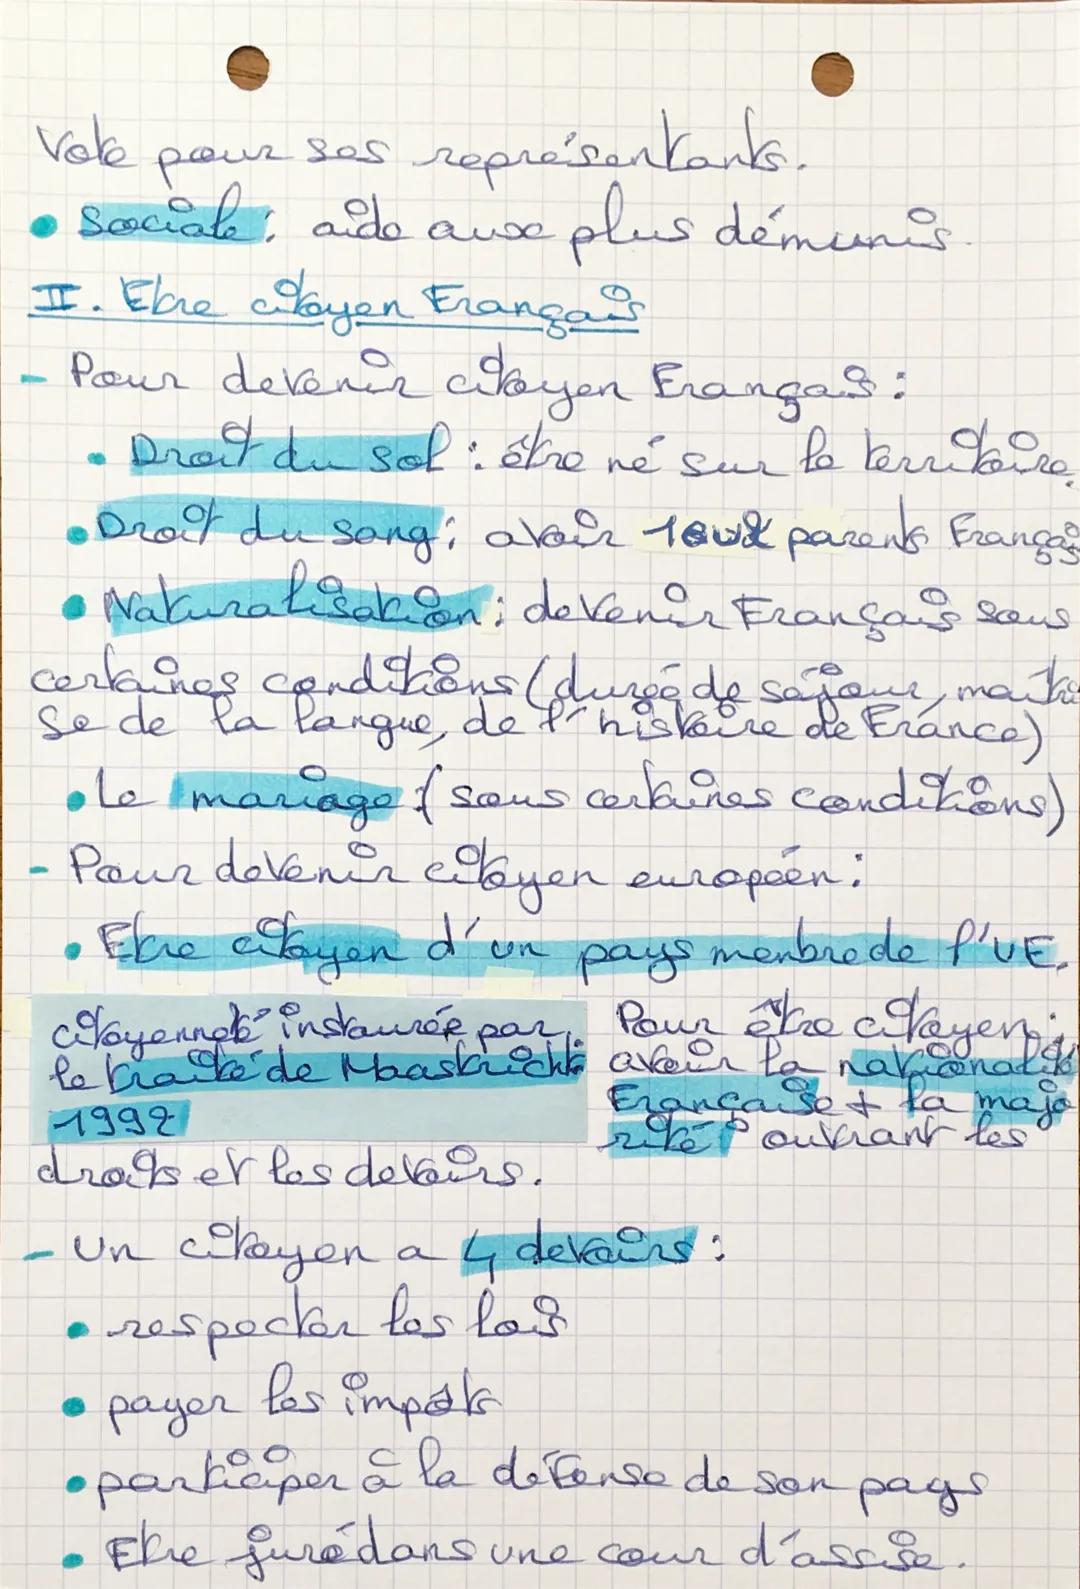 Vote pour ses représentants.
• Sociale : aide aux plus démunis.
II. Etre citoyen Français
- Pour devenir citoyen Français :
• Droit du sol : être né sur le territoire.
• Droit du sang : avoir 1 ou 2 parents Français
• Naturalisation : devenir Français sous
certaines conditions (durée de séjour, maitri
se de la langue, de l'histoire de France)
• Le mariage (sous certaines conditions)
- Pour devenir citoyen européen :
• Etre citoyen d'un pays menbre de l'UE.
citoyenneté instaurée par
le traité de Maastricht
1992
Pour être citoyen :
avoir la nationalité
Française + la majo
rité ouvrant les
droits et les devoirs.
- Un citoyen a 4 devoirs :
• respecter les lois
• payer les impôts
• participer à la défense de son pays
• Etre juré dans une cour d'assise.